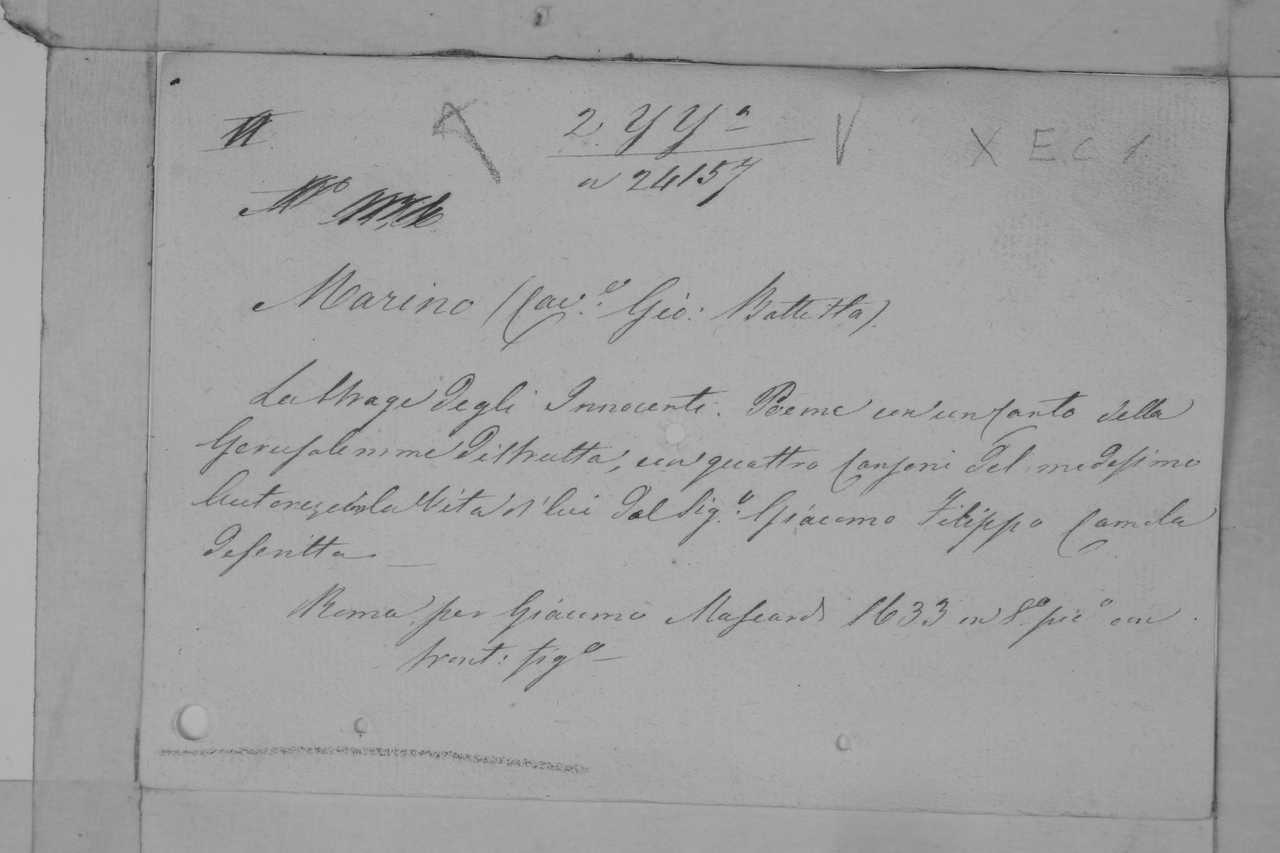 2. YYª
a 24157
X E C 1
Nº
Marino (Cav.e Gio: Battista).
La Strage degli Innocenti. Poeme con un Canto della
Gerusalemme Distrutta, con quattro Canzoni del medesimo
Autore, con la Vita di lui dal Sig.e Giacomo Filippo Camola
descritta
Roma, per Giacomo Mascardi 1633 in 8º picº con
front: figº